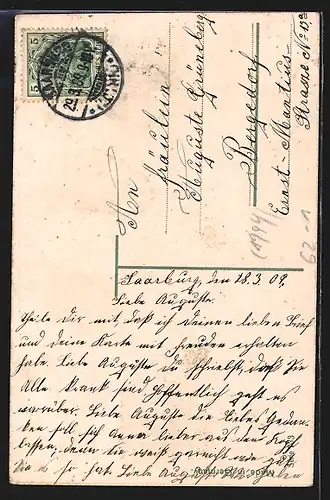 5
29.3.09.
An
Fräulein
Auguste Grüneberg
Bergedorf
Ernst-Mantius-
Strasse No 13a
(1994)
62-1
Saarburg, den 28.3.09.
Liebe Auguste.
Theile Dir mit, daß ich Deinen lieben Brief
und Deine Karte mit Freuden erhalten
habe. Liebe Auguste Du schreibst, daß Sie
Alle krank sind hoffentlich geht es
vorüber. Liebe Auguste die Liebes Gedan-
ken soll sich Anna lieber aus dem Kopf
lassen, denn sie weiß garnicht wie
so hat. Liebe Auguste